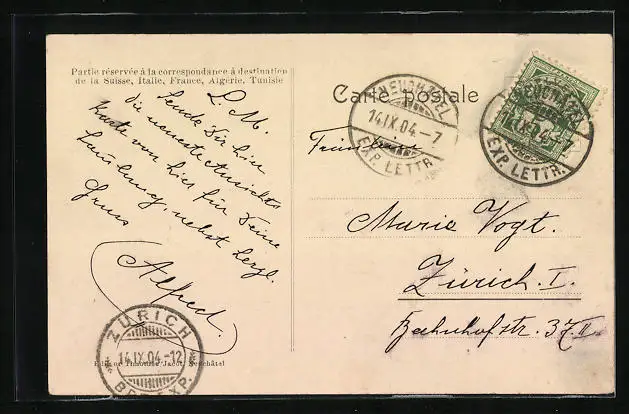 Partie réservée à la correspondance à destination
de la Suisse, Italie, France, Algérie, Tunisie
L. M.
Sende Dir hier
die neueste Ansichts
Karte von hier für Deine
Samlung, nebst herzl.
Gruss
Alfred.
ZÜRICH
14.IX.04.-12
BRF.EXP.
Editeur Timothée Jacot, Neuchâtel
Carte postale
NEUCHATEL
14.IX.04.-7
EXP. LETTR.
NEUCHATEL
14.IX.04.-7
EXP. LETTR.
Fräulein
Marie Vogt.
Zürich. I.
Bahnhofstr. 37 II